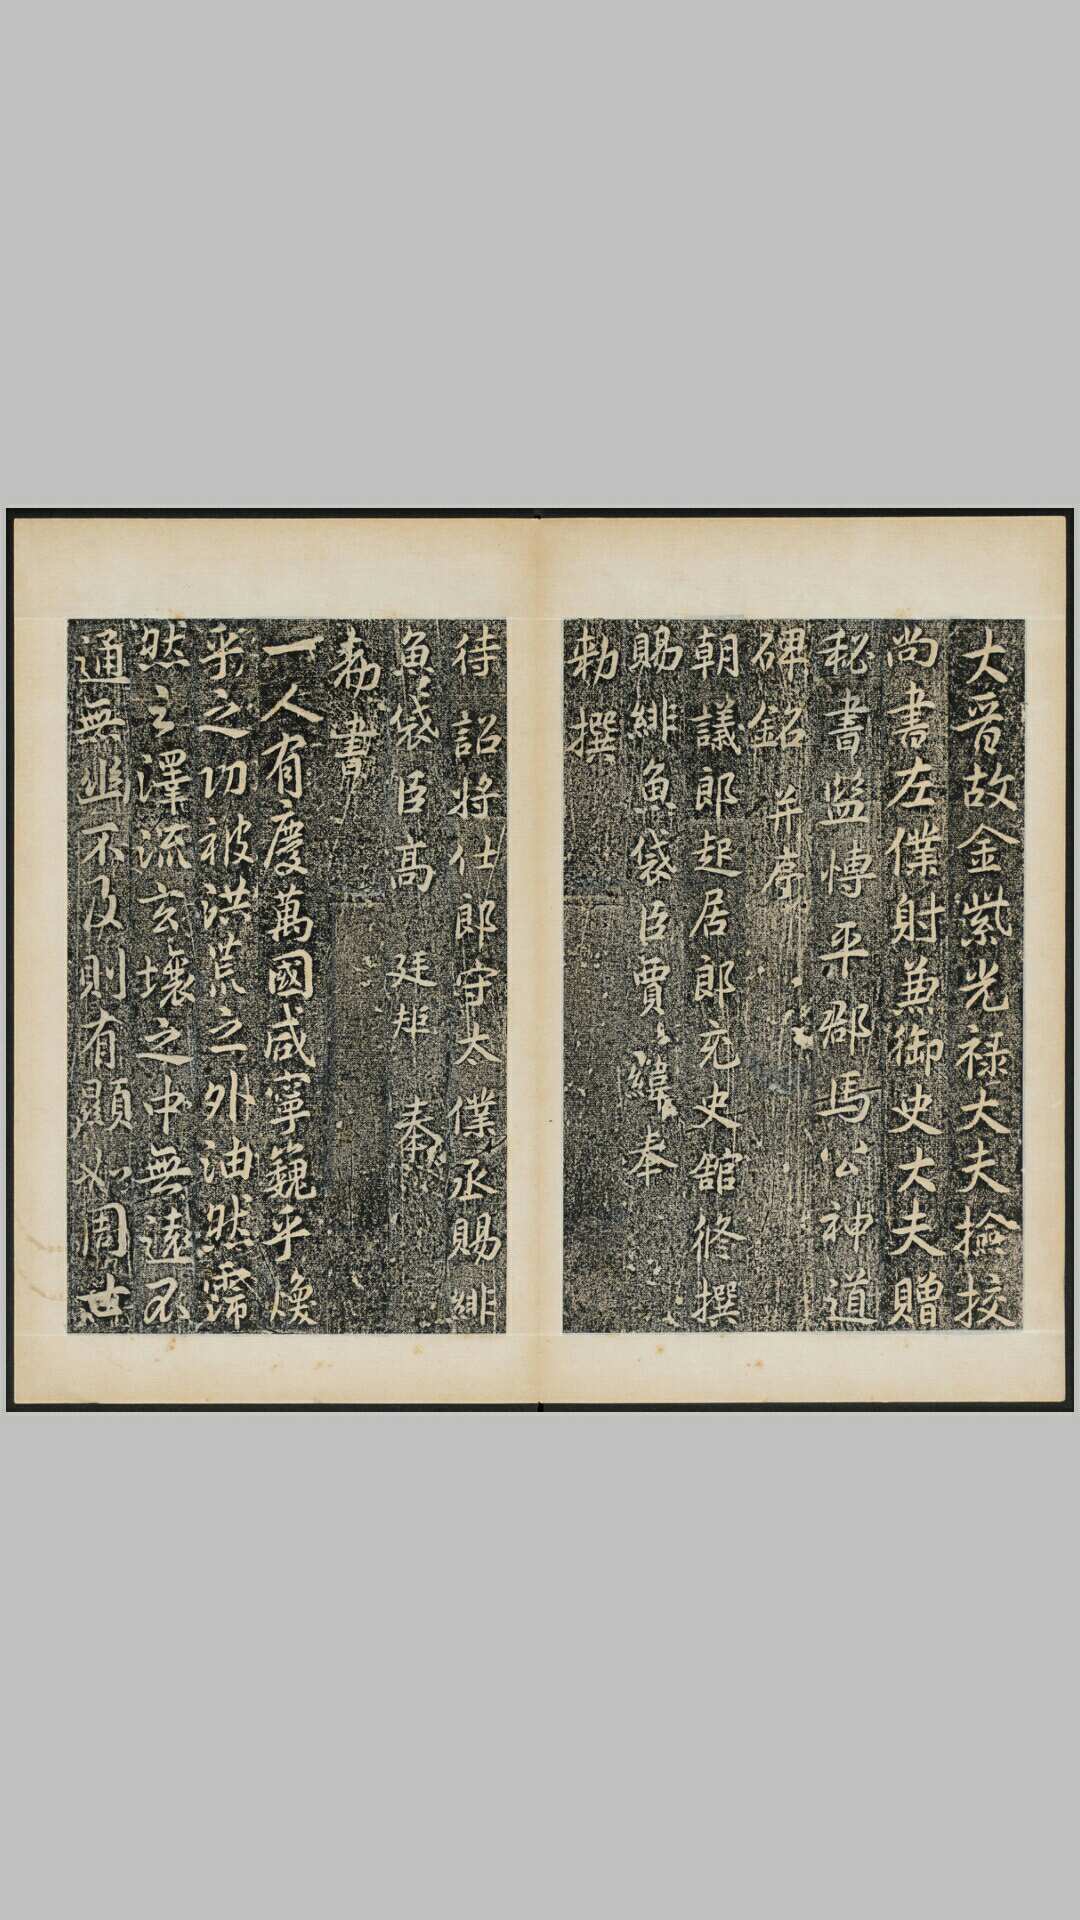 大晋故金紫光禄大夫撿挍
尚書左僕射兼御史大夫贈
秘書監愽平郡馬公神道
碑銘并序
朝議郎起居郎充史舘俢撰
賜緋魚袋臣賈緯奉
勑撰
待詔將仕郎守太僕丞賜緋
魚袋臣髙廷矩奉
勑書
一人有慶萬國咸寧巍乎煥
乎之功被洪荒之外油然霈
然之澤流玄壤之中無遠不
通無幽不及則有顯如周世